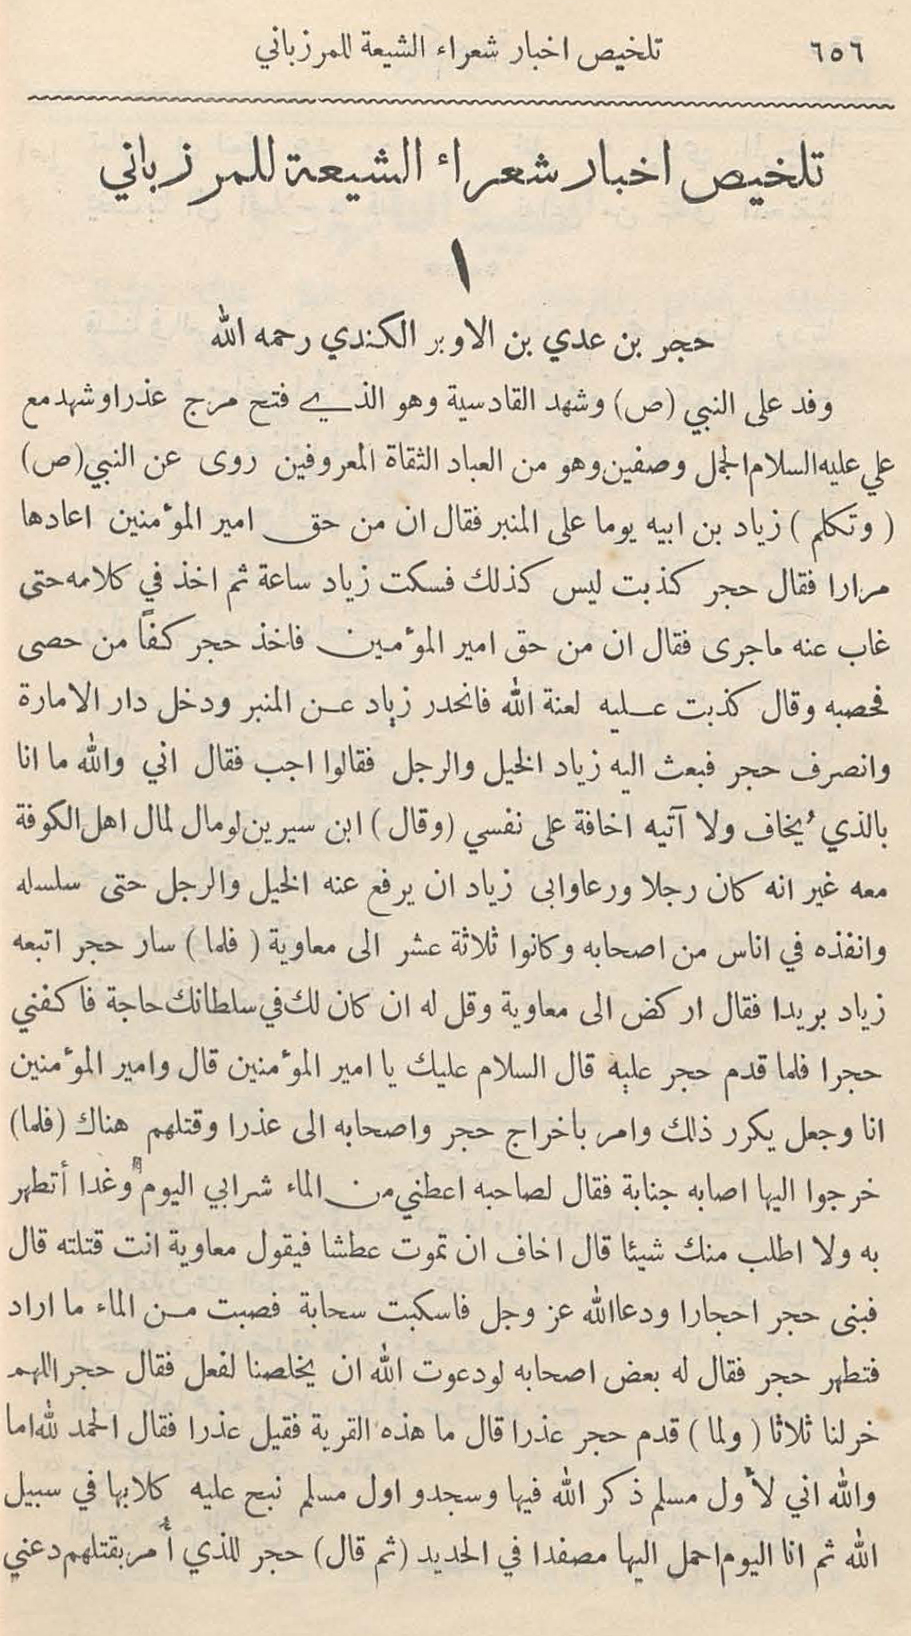 ٦٥٦ تلخيص اخبار شعراء الشيعة للمرزباني
تلخيص اخبار شعراء الشيعة للمرزباني
١
حجر بن عدي بن الاوبر الكندي رحمه الله
وفد على النبي (ص) وشهد القادسية وهو الذي فتح مرج عذرا وشهد مع
علي عليه السلام الجمل وصفين وهو من العباد الثقاة المعروفين روى عن النبي (ص)
( وتكلم ) زياد بن ابيه يوما على المنبر فقال ان من حق امير المؤمنين اعادها
مرارا فقال حجر كذبت ليس كذلك فسكت زياد ساعة ثم اخذ في كلامه حتى
غاب عنه ماجرى فقال ان من حق امير المؤمنين فاخذ حجر كفاً من حصى
فحصبه وقال كذبت عليه لعنة الله فانحدر زياد عن المنبر ودخل دار الامارة
وانصرف حجر فبعث اليه زياد الخيل والرجل فقالوا اجب فقال اني والله ما انا
بالذي يُخاف ولا آتيه اخافة على نفسي (وقال) ابن سيرين لومال لمال اهل الكوفة
معه غير انه كان رجلا ورعا وابى زياد ان يرفع عنه الخيل والرجل حتى سلسله
وانفذه في اناس من اصحابه وكانوا ثلاثة عشر الى معاوية ( فلما ) سار حجر اتبعه
زياد بريدا فقال اركض الى معاوية وقل له ان كان لك في سلطانك حاجة فاكفني
حجرا فلما قدم حجر عليه قال السلام عليك يا امير المؤمنين قال وامير المؤمنين
انا وجعل يكرر ذلك وامر باخراج حجر واصحابه الى عذرا وقتلهم هناك (فلما)
خرجوا اليها اصابه جنابة فقال لصاحبه اعطني من الماء شرابي اليوم وغدا أتطهر
به ولا اطلب منك شيئا قال اخاف ان تموت عطشا فيقول معاوية انت قتلته قال
فبنى حجر احجارا ودعا الله عز وجل فاسكبت سحابة فصبت من الماء ما اراد
فتطهر حجر فقال له بعض اصحابه لودعوت الله ان يخلصنا لفعل فقال حجر اللهم
خر لنا ثلاثا ( ولما ) قدم حجر عذرا قال ما هذه القرية فقيل عذرا فقال الحمد لله اما
والله اني لأول مسلم ذكر الله فيها وسجدو اول مسلم نبح عليه كلابها في سبيل
الله ثم انا اليوم احمل اليها مصفدا في الحديد (ثم قال) حجر للذي أمر بقتلهم دعني